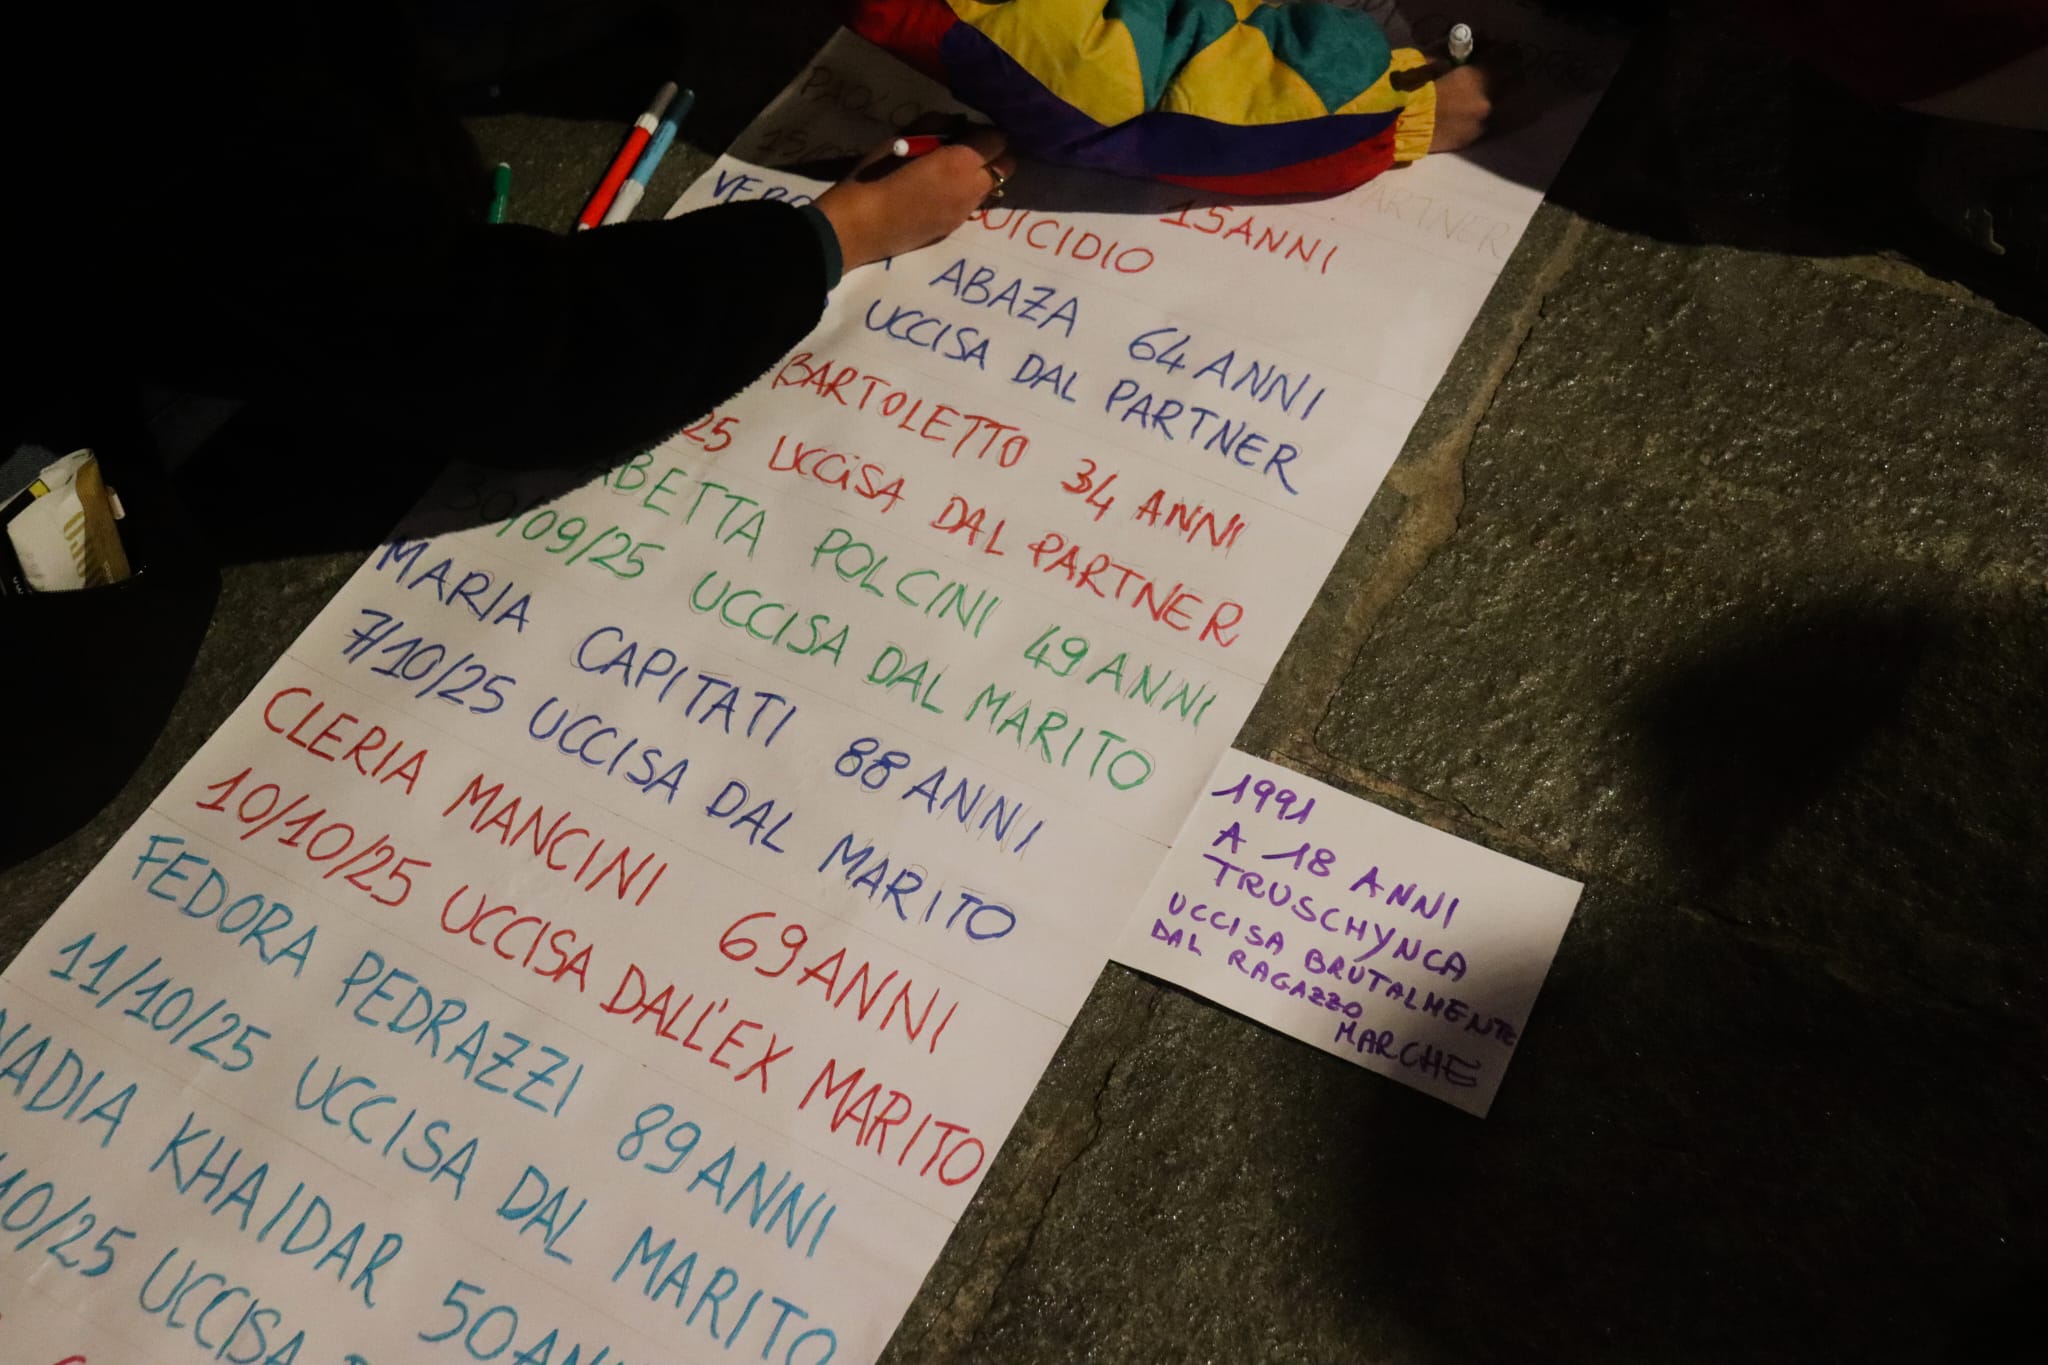 PAOLO
15/
PARTNER
15 ANNI
SUICIDIO
ABAZA 64 ANNI
UCCISA DAL PARTNER
BARTOLETTO 34 ANNI
25 UCCISA DAL PARTNER
ABETTA POLCINI 49 ANNI
30/09/25 UCCISA DAL MARITO
MARIA CAPITATI 88 ANNI
7/10/25 UCCISA DAL MARITO
CLERIA MANCINI 69 ANNI
10/10/25 UCCISA DALL'EX MARITO
FEDORA PEDRAZZI 89 ANNI
11/10/25 UCCISA DAL MARITO
NADIA KHAIDAR 50 ANN
/10/25 UCCISA
1991
A 18 ANNI
TRUSCHYNCA
UCCISA BRUTALMENTE
DAL RAGAZZO
MARCHE